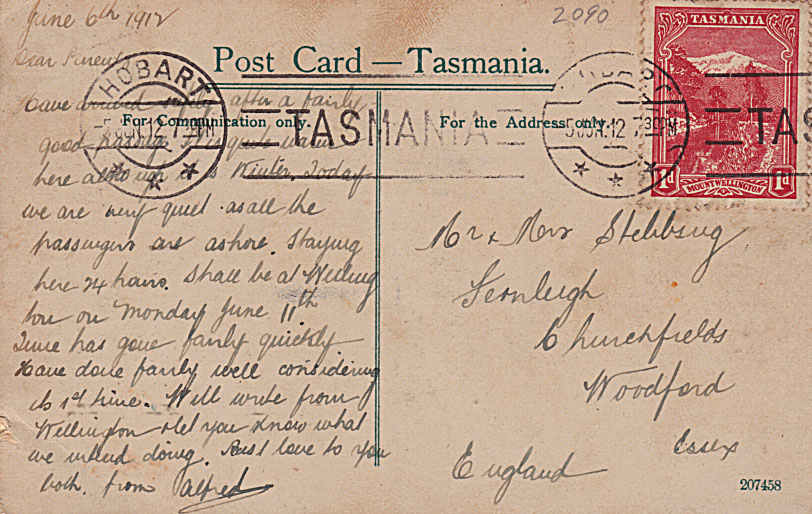 June 6th 1912
2090
Dear Parents
Post Card — Tasmania.
HOBART
5 JUN. 12 7 30PM
TASMANIA
Have arrived safely after a fairly
For Communication only.
good passage. It is quite warm
here although it is Winter. Today
we are very quiet as all the
passengers are ashore. Staying
here 24 hours. Shall be at Welling
ton on Monday June 11th
Time has gone fairly quickly
Have done fairly well considering
its 1st time. Will write from
Wellington & let you know what
we intend doing. Best love to you
both. from Alfred
For the Address only.
HOBART
5 JUN. 12 7 30PM
TAS
TASMANIA
1d 1d
MOUNT WELLINGTON
Mr & Mrs Stebbing
Fernleigh
Churchfields
Woodford
Essex
England
207458